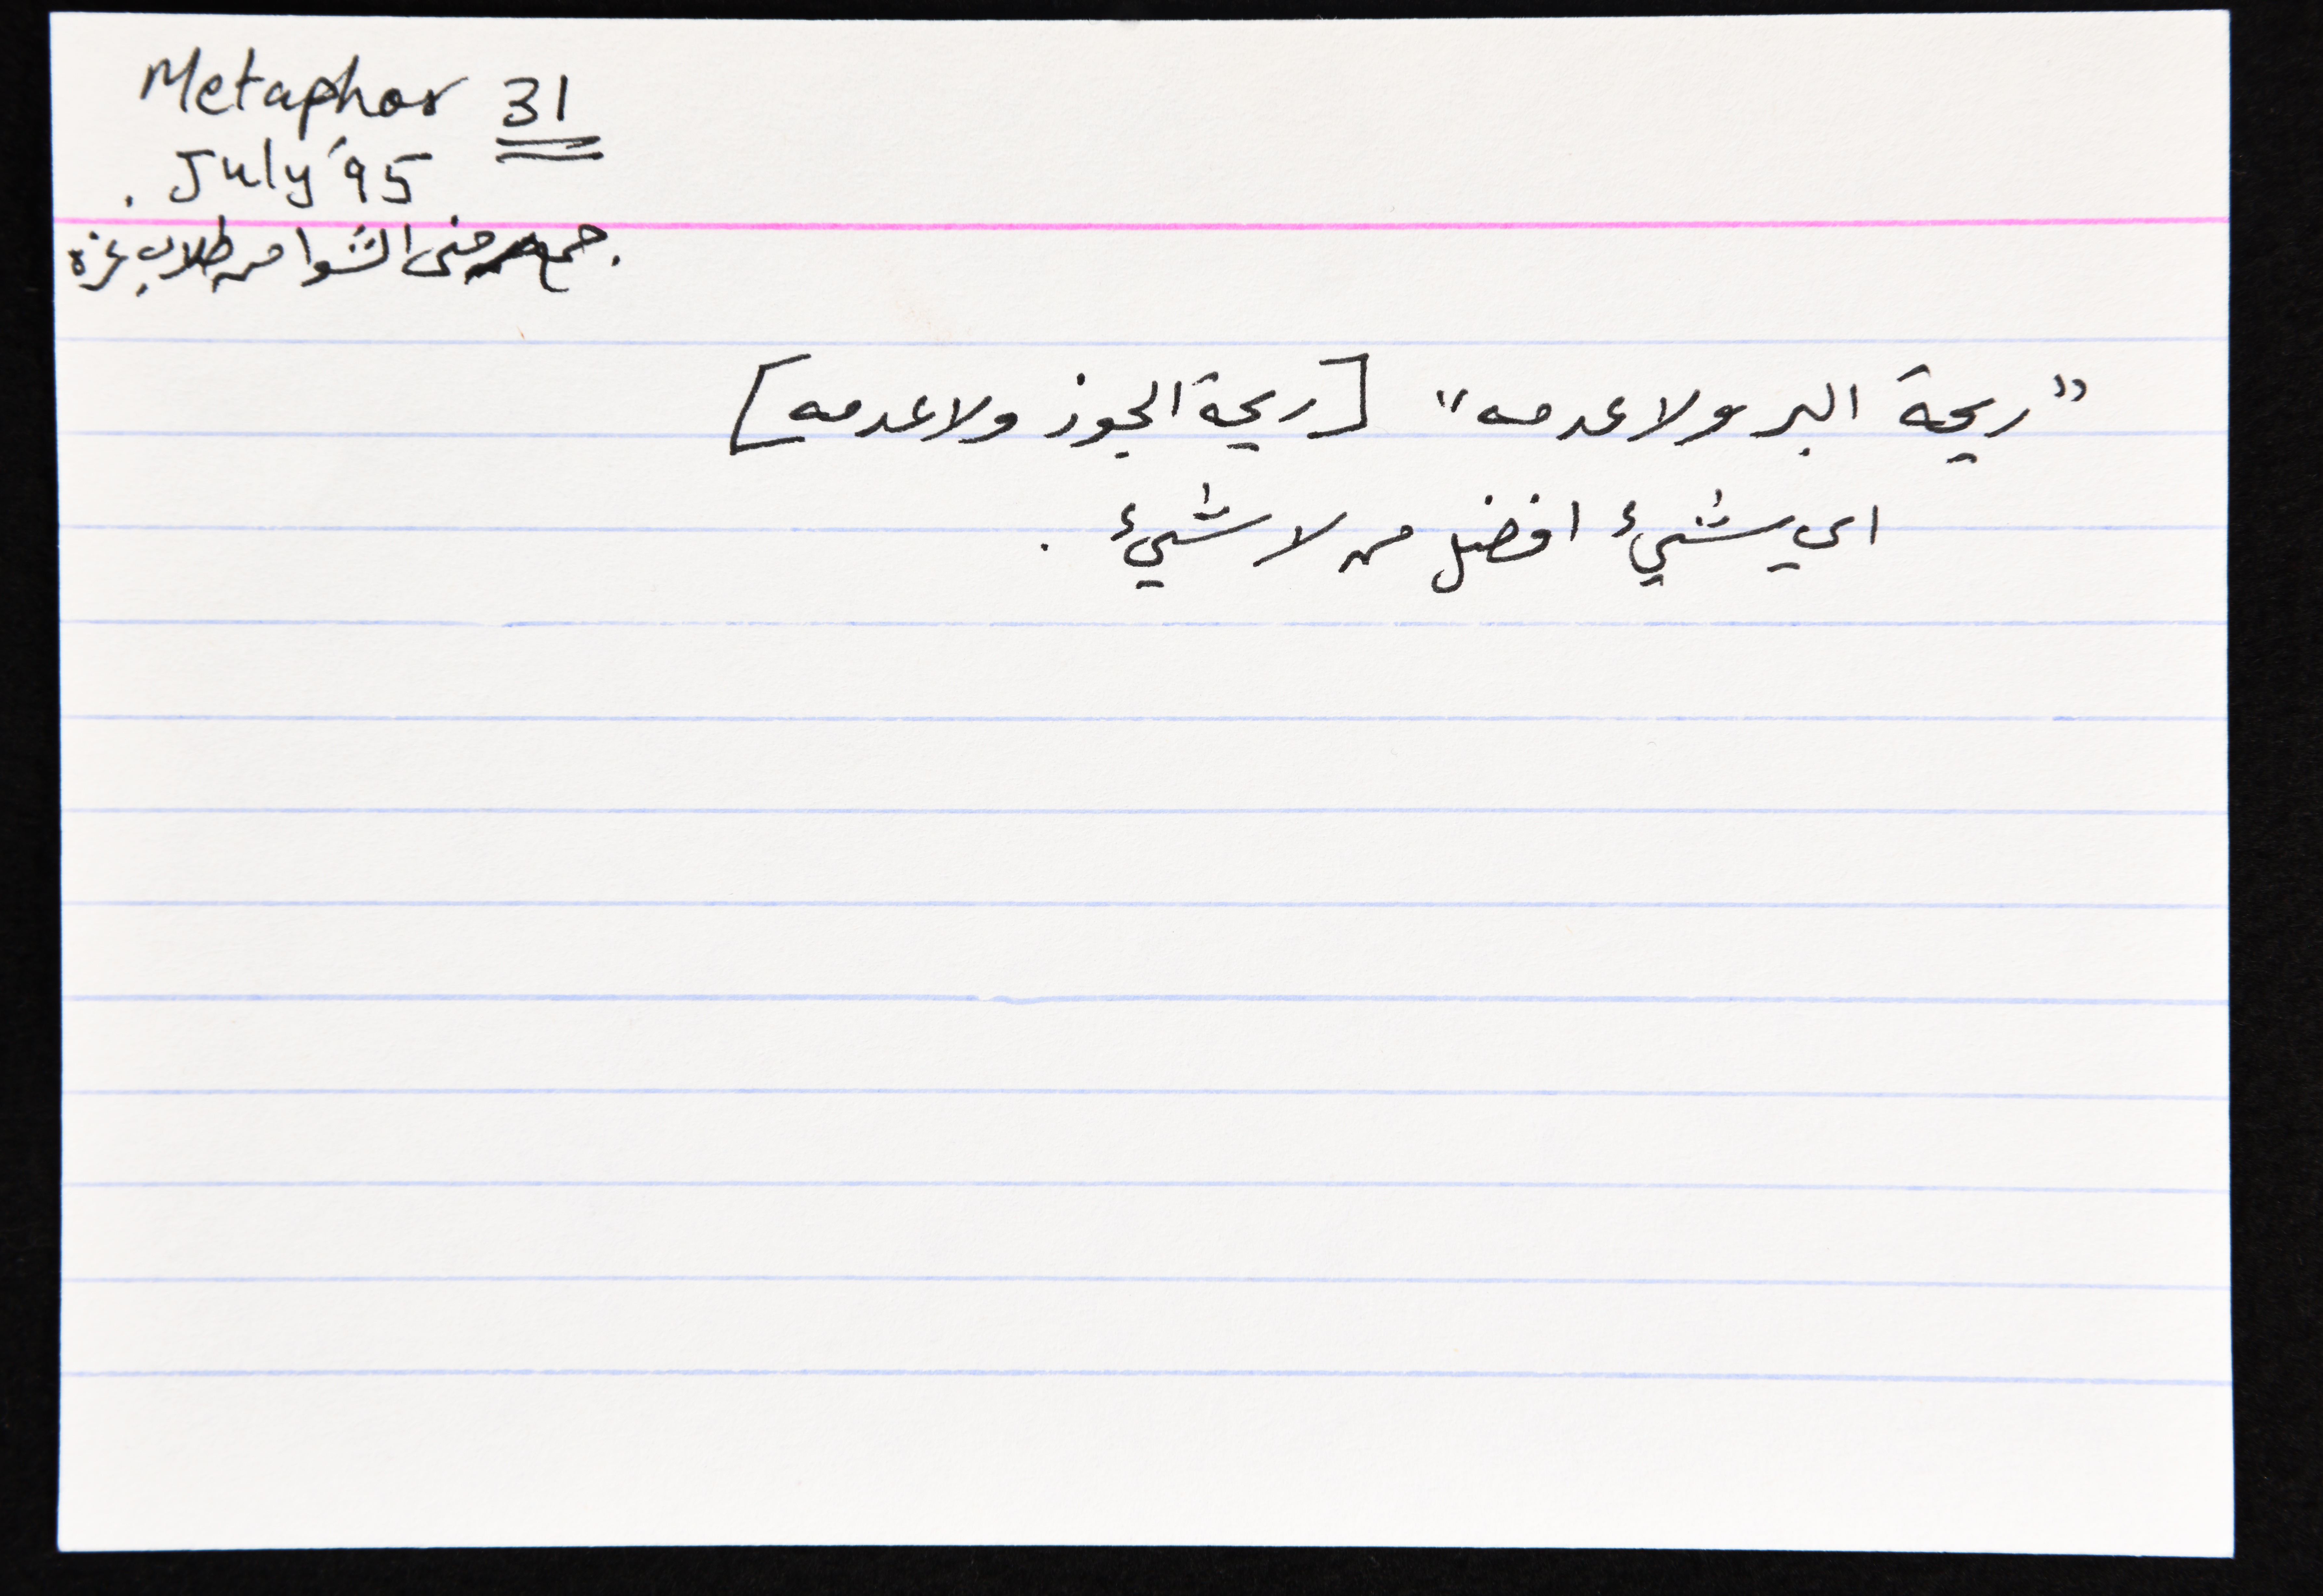 Metaphor 31
July '95 .
. جمع منى الشوا من طلاب غزة
"ريحة البر ولا عدمه" [ريحة الجوز ولا عدمه]
اي شيء افضل من لا شيء .